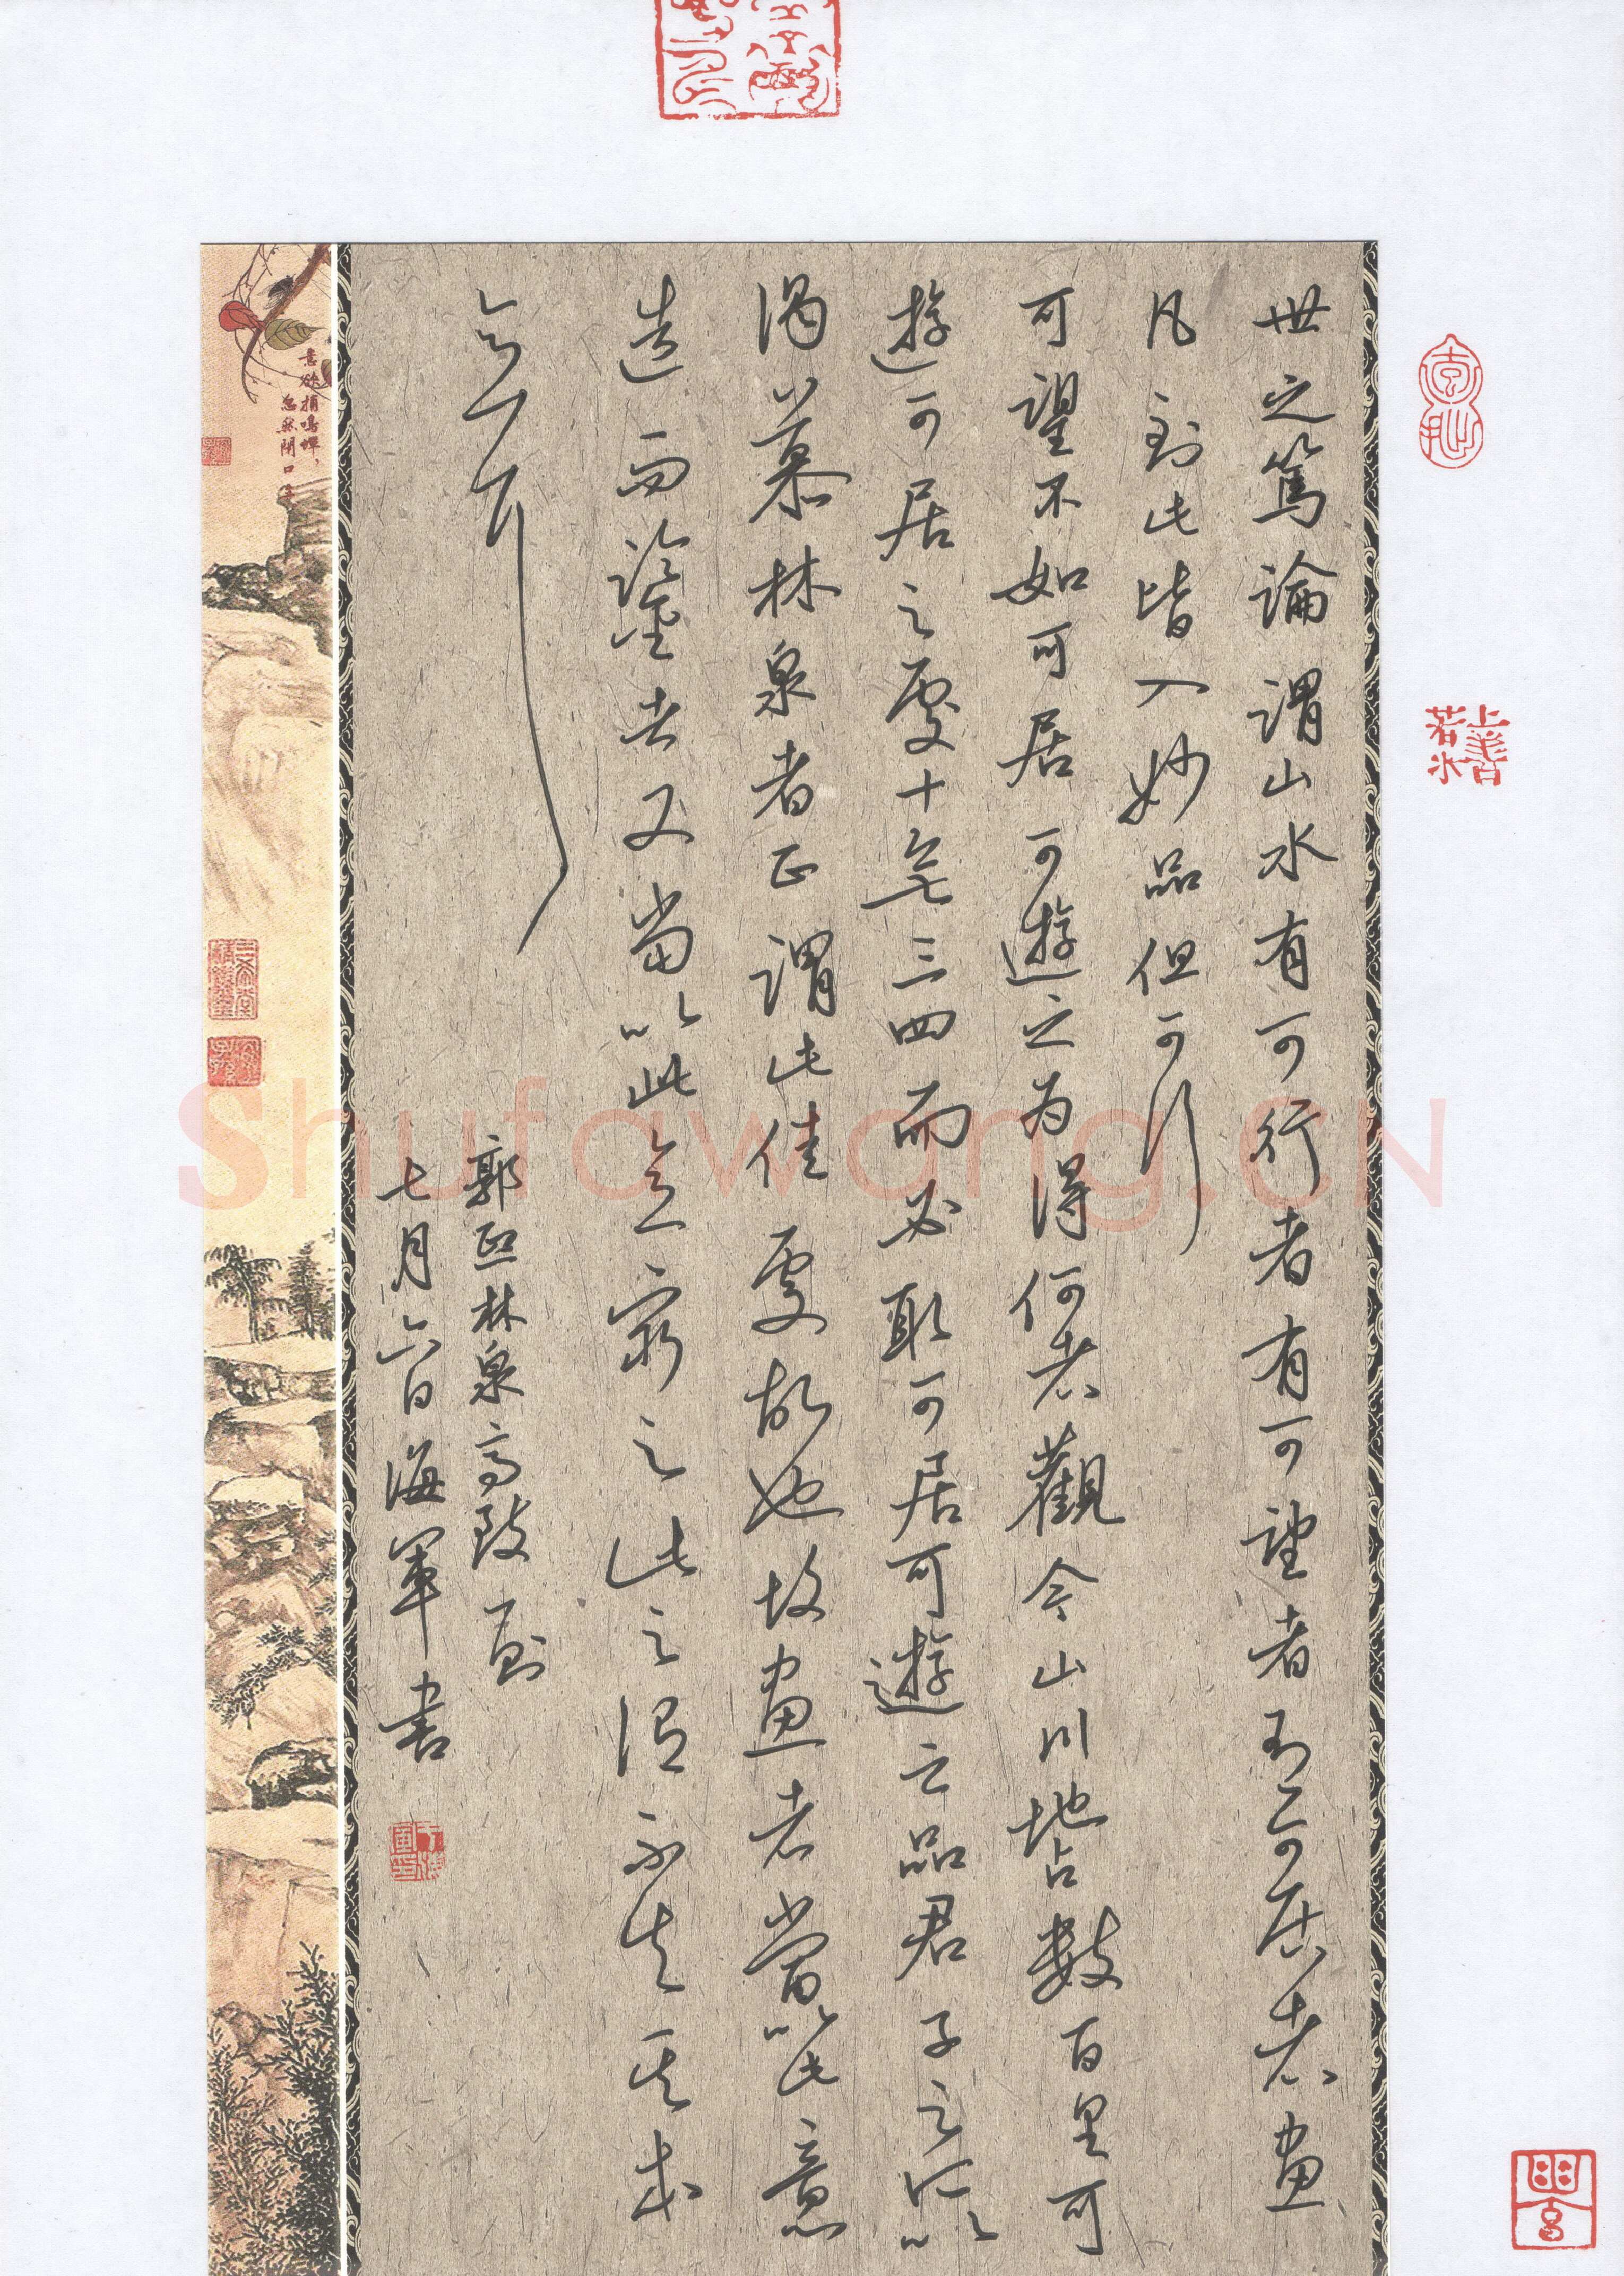 世之篤論謂山水有可行者有可望者有可居者畫
凡到此皆入妙品但可行
可望不如可居可遊之为得何者觀今山川地占数百里可
遊可居之處十無三四而必取可居可遊之品君子之所以
渴慕林泉者正謂此佳處故也故畫者當以此意
造而鑒者又當以此意窮之此之謂不失其本
意耳
郭熙林泉高致一則
七月六日海軍書
意欲捕鳴蟬，
忽然閉口立
上善
若水
Shufawang.CN